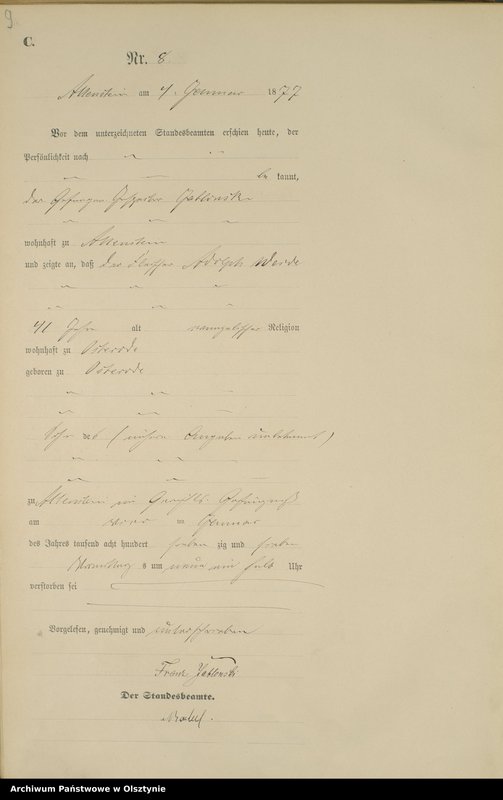 9
C.
Nr. 8
Allenstein am 4. Januar 1877
Vor dem unterzeichneten Standesbeamten erschien heute, der
Persönlichkeit nach
be kannt,
der Gefangen Jablonski
wohnhaft zu Allenstein
und zeigte an, daß der Adolph
41 Jahr alt evangelischer Religion
wohnhaft zu Osterode
geboren zu Osterode
Sohn des ( Angaben unbekannt )
zu Allenstein im Gerichts Gefängniß
am vier im Januar
des Jahres tausend acht hundert sieben zig und sieben
Vormittag s um neun ein halb Uhr
verstorben sei
Vorgelesen, genehmigt und unterschrieben
Franz Jablonski
Der Standesbeamte.
Archiwum Państwowe w Olsztynie